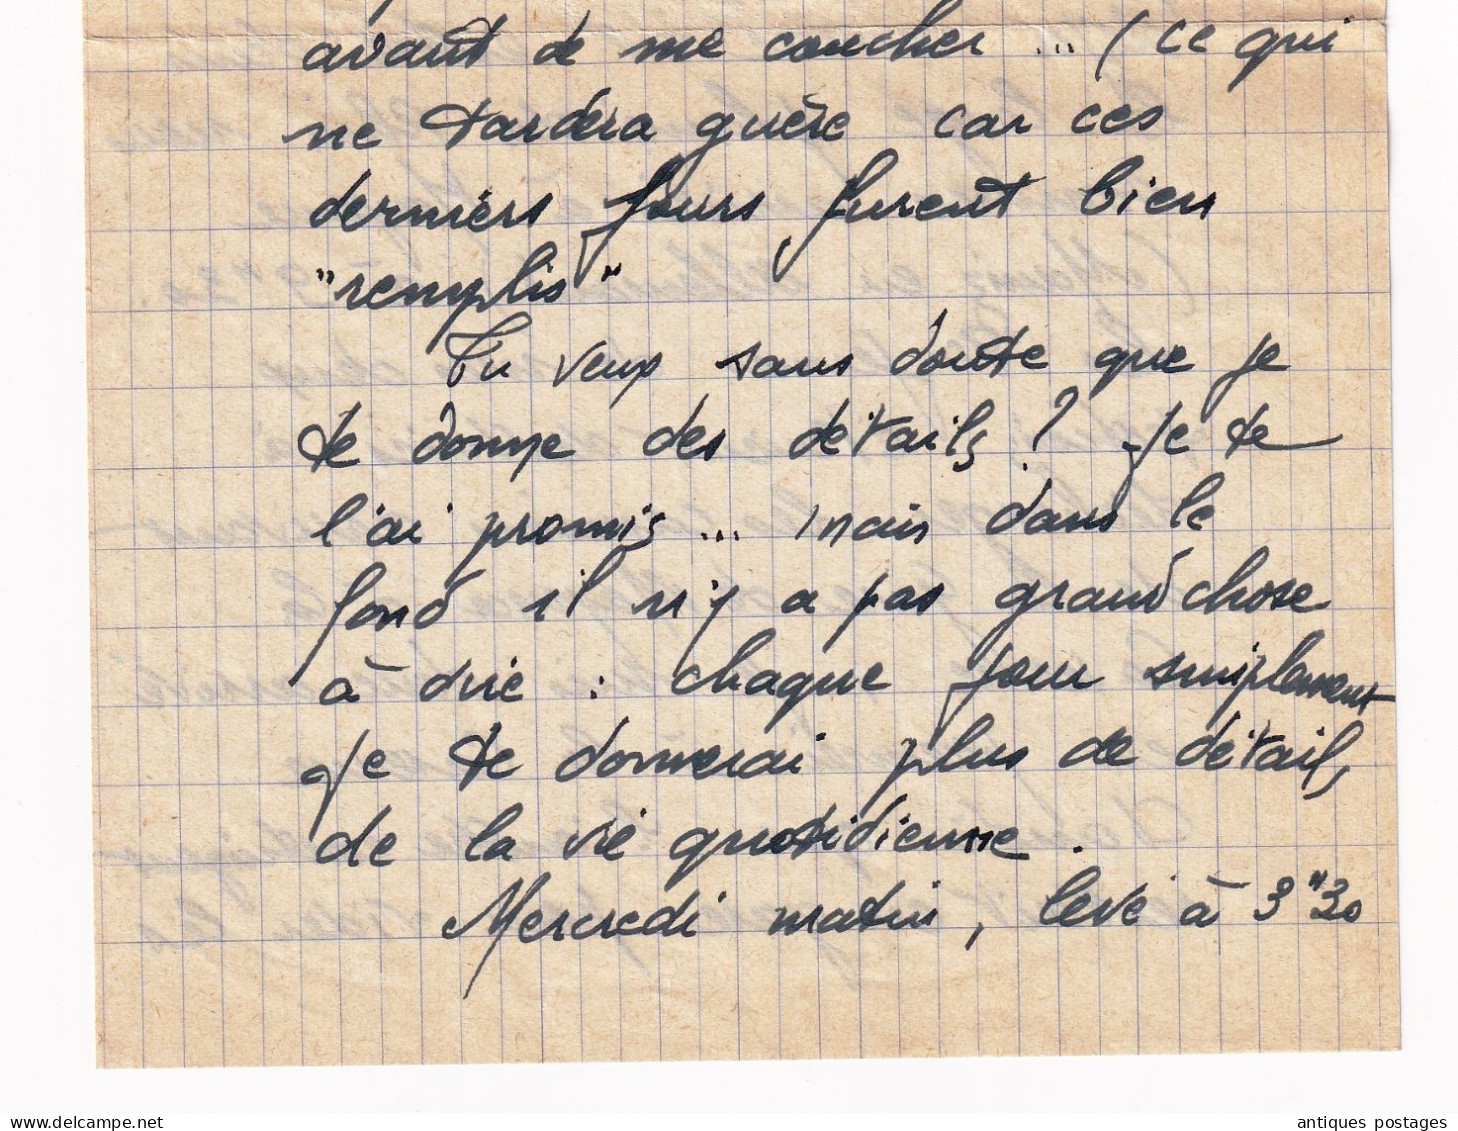 avant de me coucher ... (ce qui
ne tardera guère car ces
derniers jours furent bien
"remplis"
Tu veux sans doute que je
te donne des détails ? Je te
l'ai promis ... mais dans le
fond il n'y a pas grand chose
à dire : chaque jour simplement
je te donnerai plus de détails
de la vie quotidienne.
Mercredi matin, levé à 3"30
antiques postages